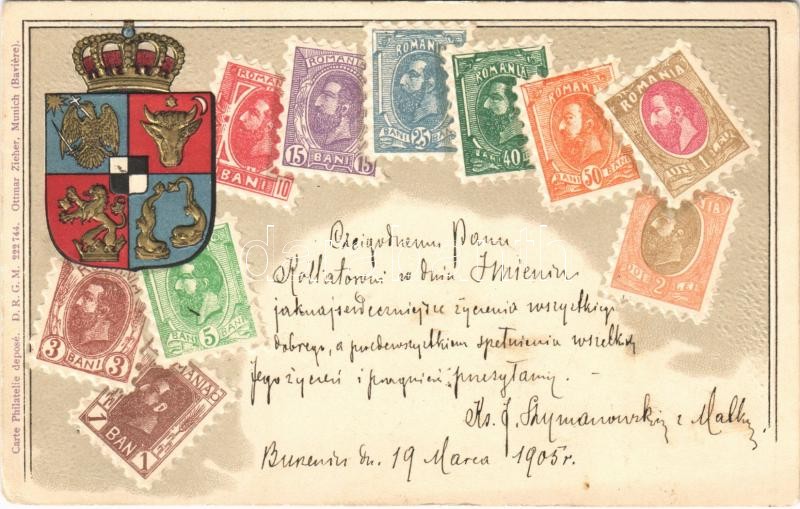 Carte Philatelie deposé. D. R. G. M. 222744. Ottmar Zieher, Munich (Bavière).
ROMANIA
BANI 10
ROMANIA
15 BANI 15
ROMANIA
BANI 25 BANI
ROMANIA
40
ROMANIA
BANI 50 BANI
ROMANIA
UN
2 LEI
3 BANI 3
BANI 5 BANI
ROMANIA
1 BAN 1
Czcigodnemu Panu
Kollatorowi w dniu Imienin
jaknajserdeczniejsze życzenia wszystkiego
dobrego, a przedewszystkiem spełnienia wszelkich
Jego życzeń i pragnień przesyłamy.
Ks. J. Szymanowski z Matką
dn. 19 Marca 1905 r.